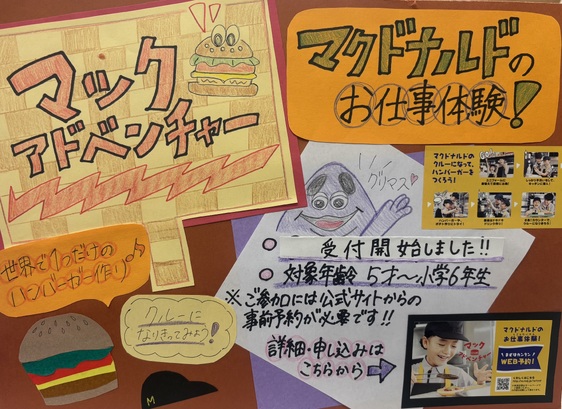 マック
アドベンチャー
マクドナルドの
お仕事体験!
グリマス♡
マクドナルドの
クルーになって、
ハンバーガーを
つくろう!
受付開始しました!!
対象年齢 5才〜小学6年生
※ご参加には公式サイトからの
事前予約が必要です!!
詳細・申し込みは
こちらから
世界で1つだけの
ハンバーガー作り♪
クルーに
なりきってみよう!
M
マクドナルドの
お仕事体験!
マック
アドベンチャー
WEB予約!